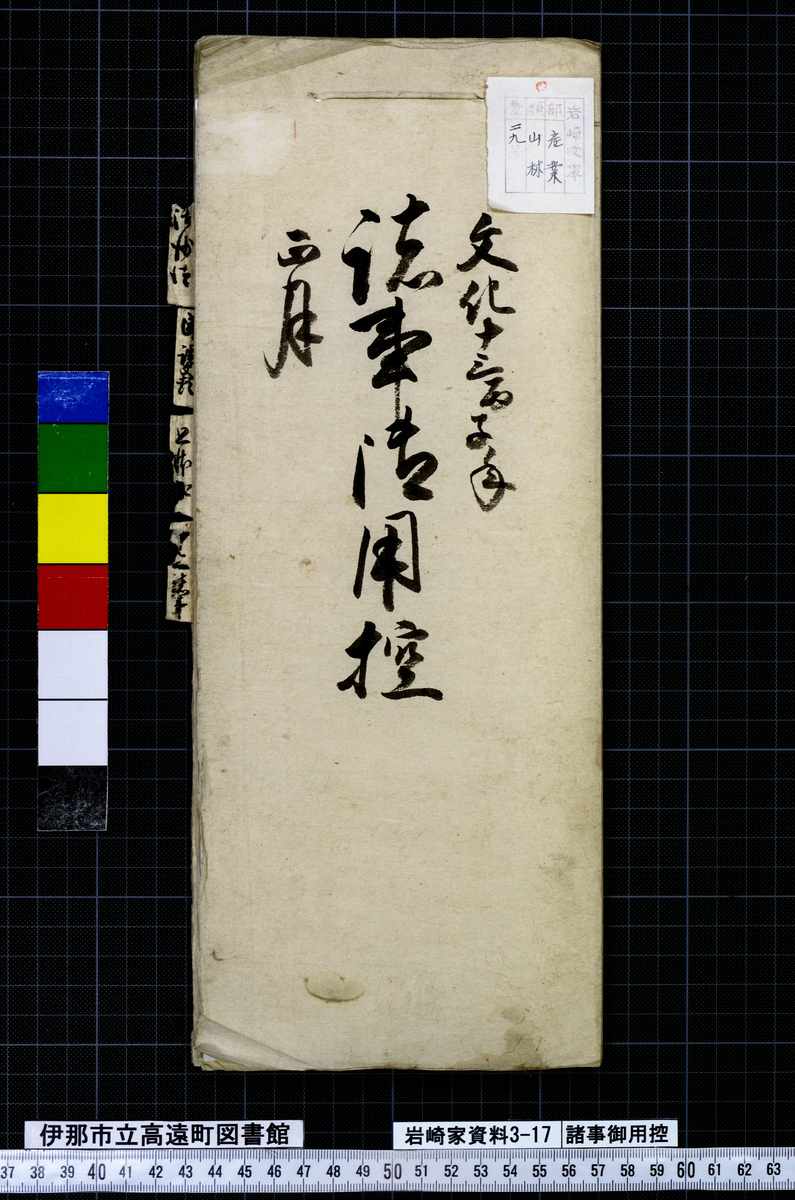 岩崎文庫
部 産業
類 山林
二九
文化十三丙子年
諸事御用控
正月
伊那市立高遠町図書館
岩崎家資料3-17 諸事御用控
37 38 39 40 41 42 43 44 45 46 47 48 49 50 51 52 53 54 55 56 57 58 59 60 61 62 63